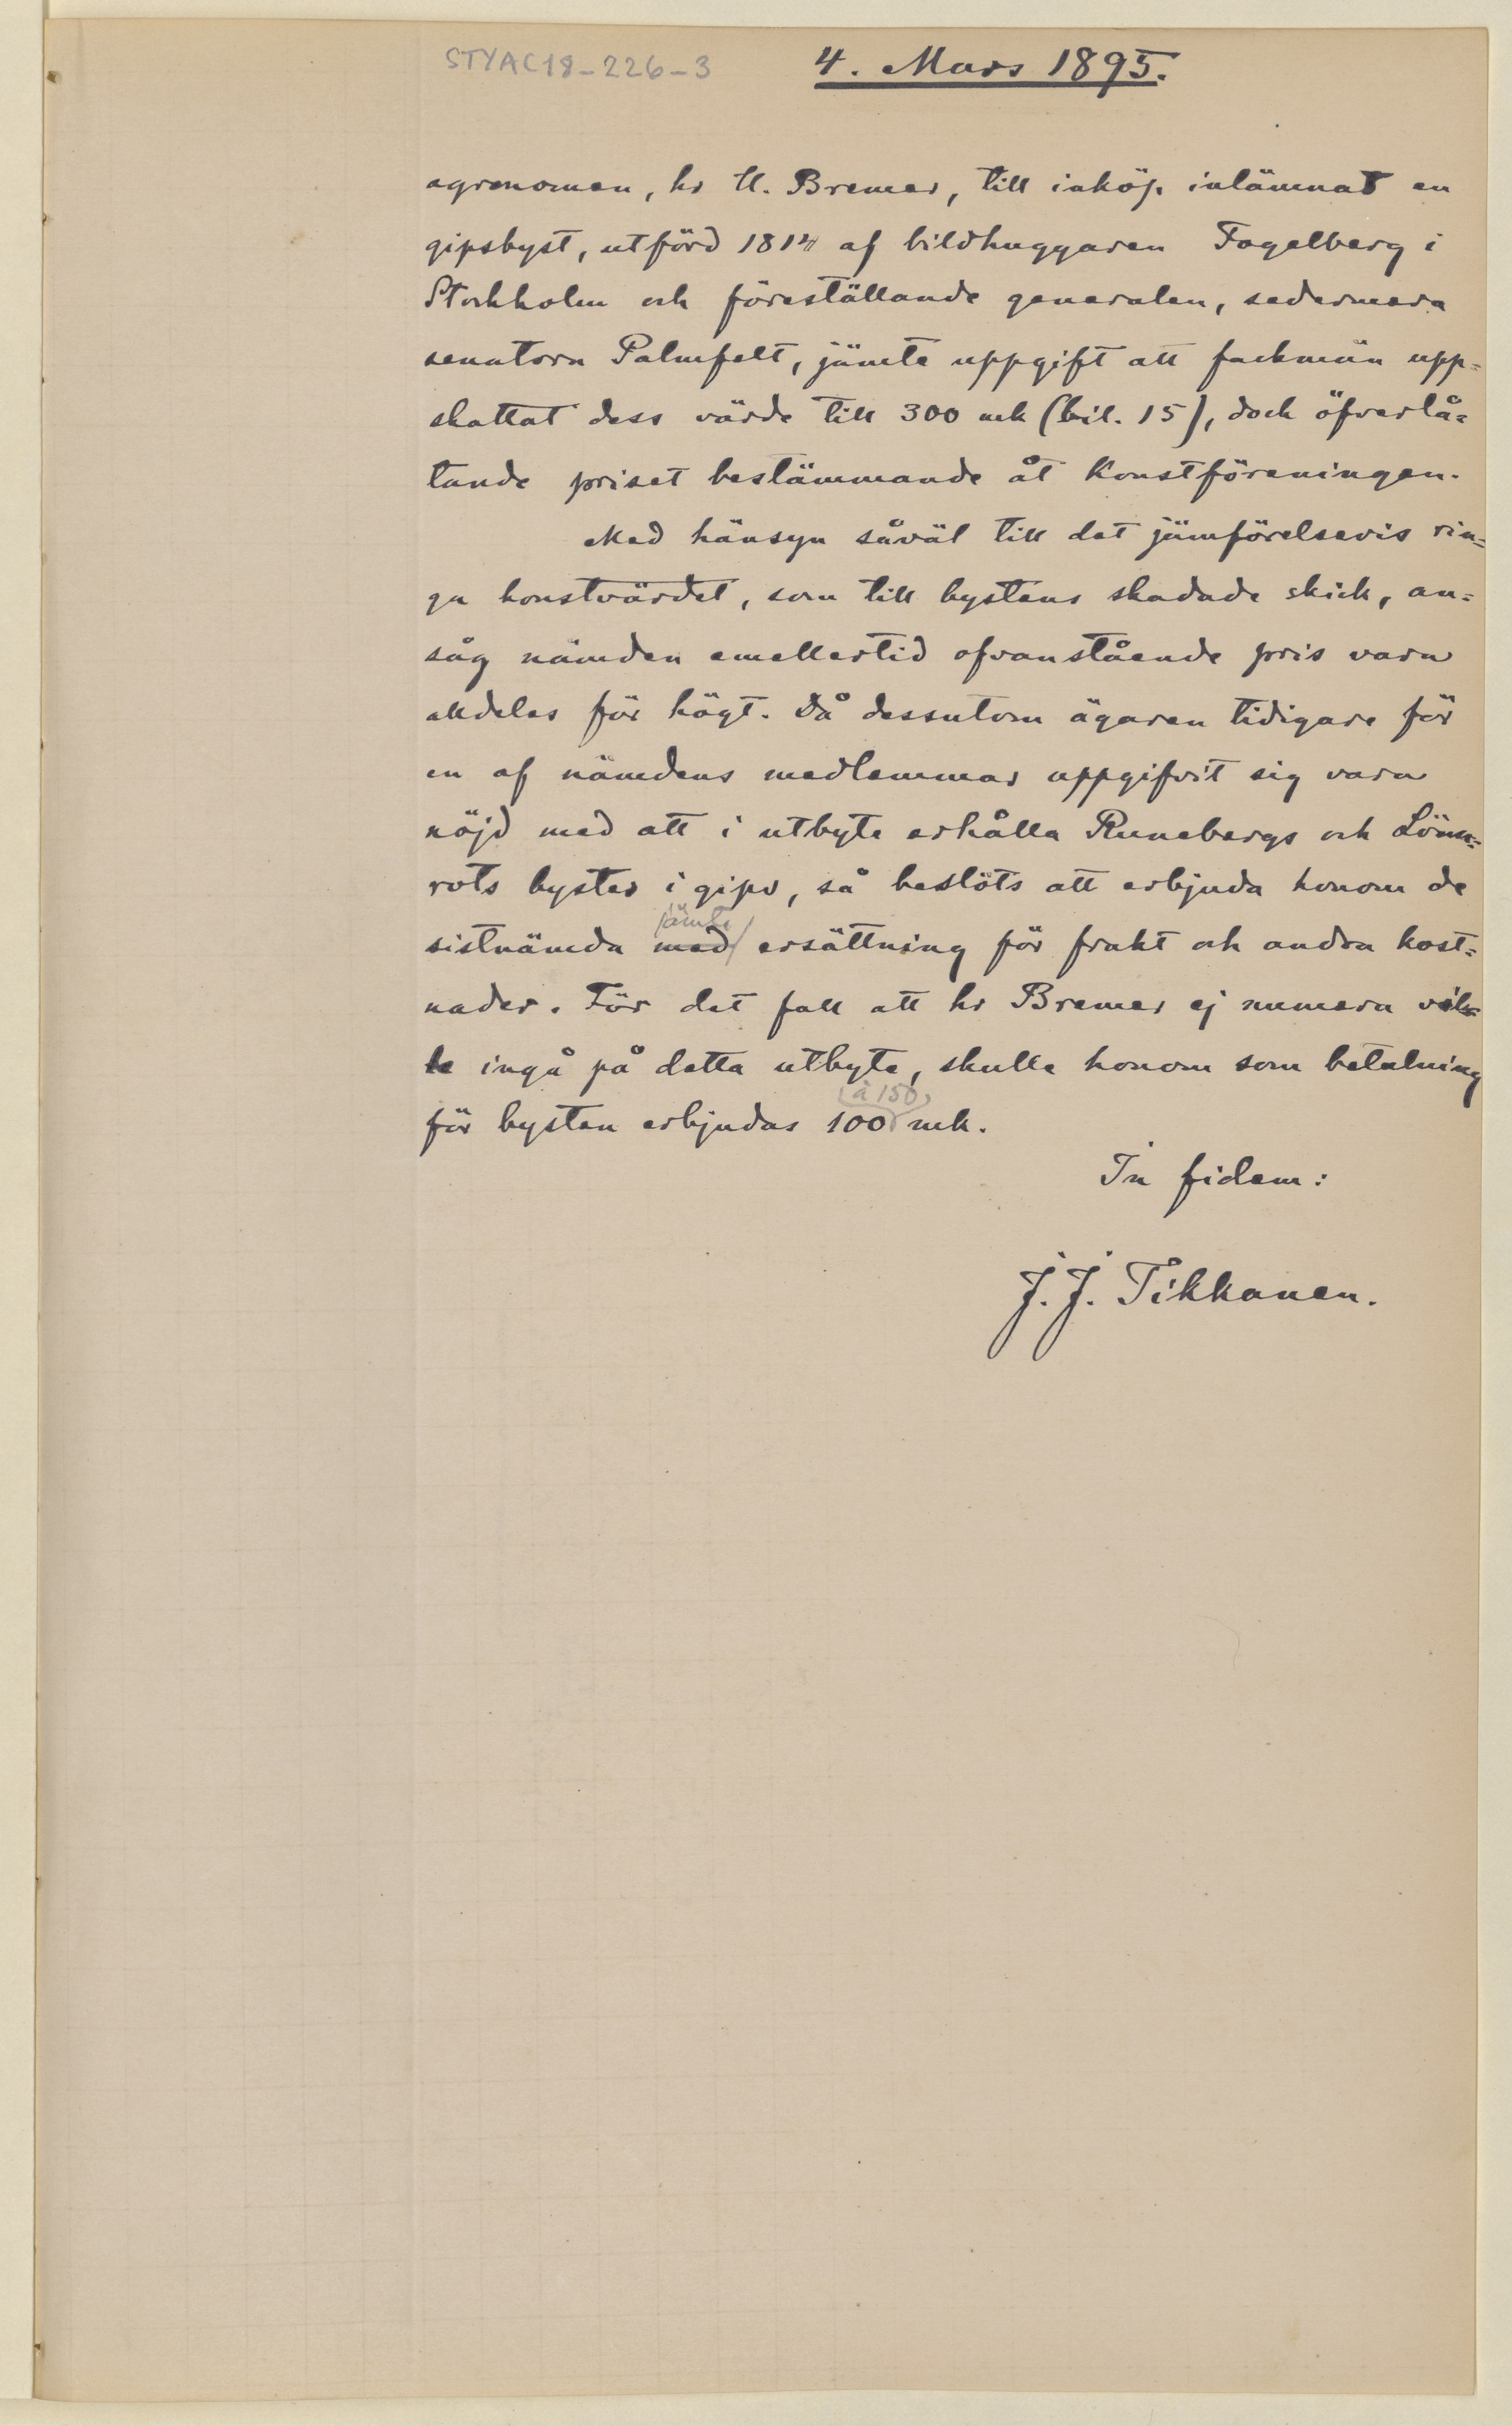 STYAC18-226-3
4. Mars 1895.
agronomen, hr U. Bremer, till inköp inlämnat en
gipsbyst, utförd 1814 af bildhuggaren Fogelberg i
Stockholm och föreställande generalen, sedermera
senatorn Palmfelt, jämte uppgift att fackmän upp=
skattat dess värde till 300 mk (bil. 15), doch öfverlå=
tande priset bestämmande åt Konstföreningen.
Med hänsyn såväl till det jämförelsevis rin=
ga konstvärdet, som till bystens skadade skick, an=
såg nämden emellertid ofvanstående pris vara
alldeles för högt. Då dessutom ägaren tidigare för
en af nämdens medlemmar uppgifvit sig vara
nöjd med att i utbyte erhålla Runebergs och Lönn=
rots byster i gips, så beslöts att erbjuda honom de
jämte
sistnämda med ersättning för frakt och andra kost=
nader. För det fall att hr Bremer ej numera vil=
le ingå på detta utbyte, skulle honom som betalning
(à 150)
för bysten erbjudas 100 mk.
In fidem:
J. J. Tikkanen.